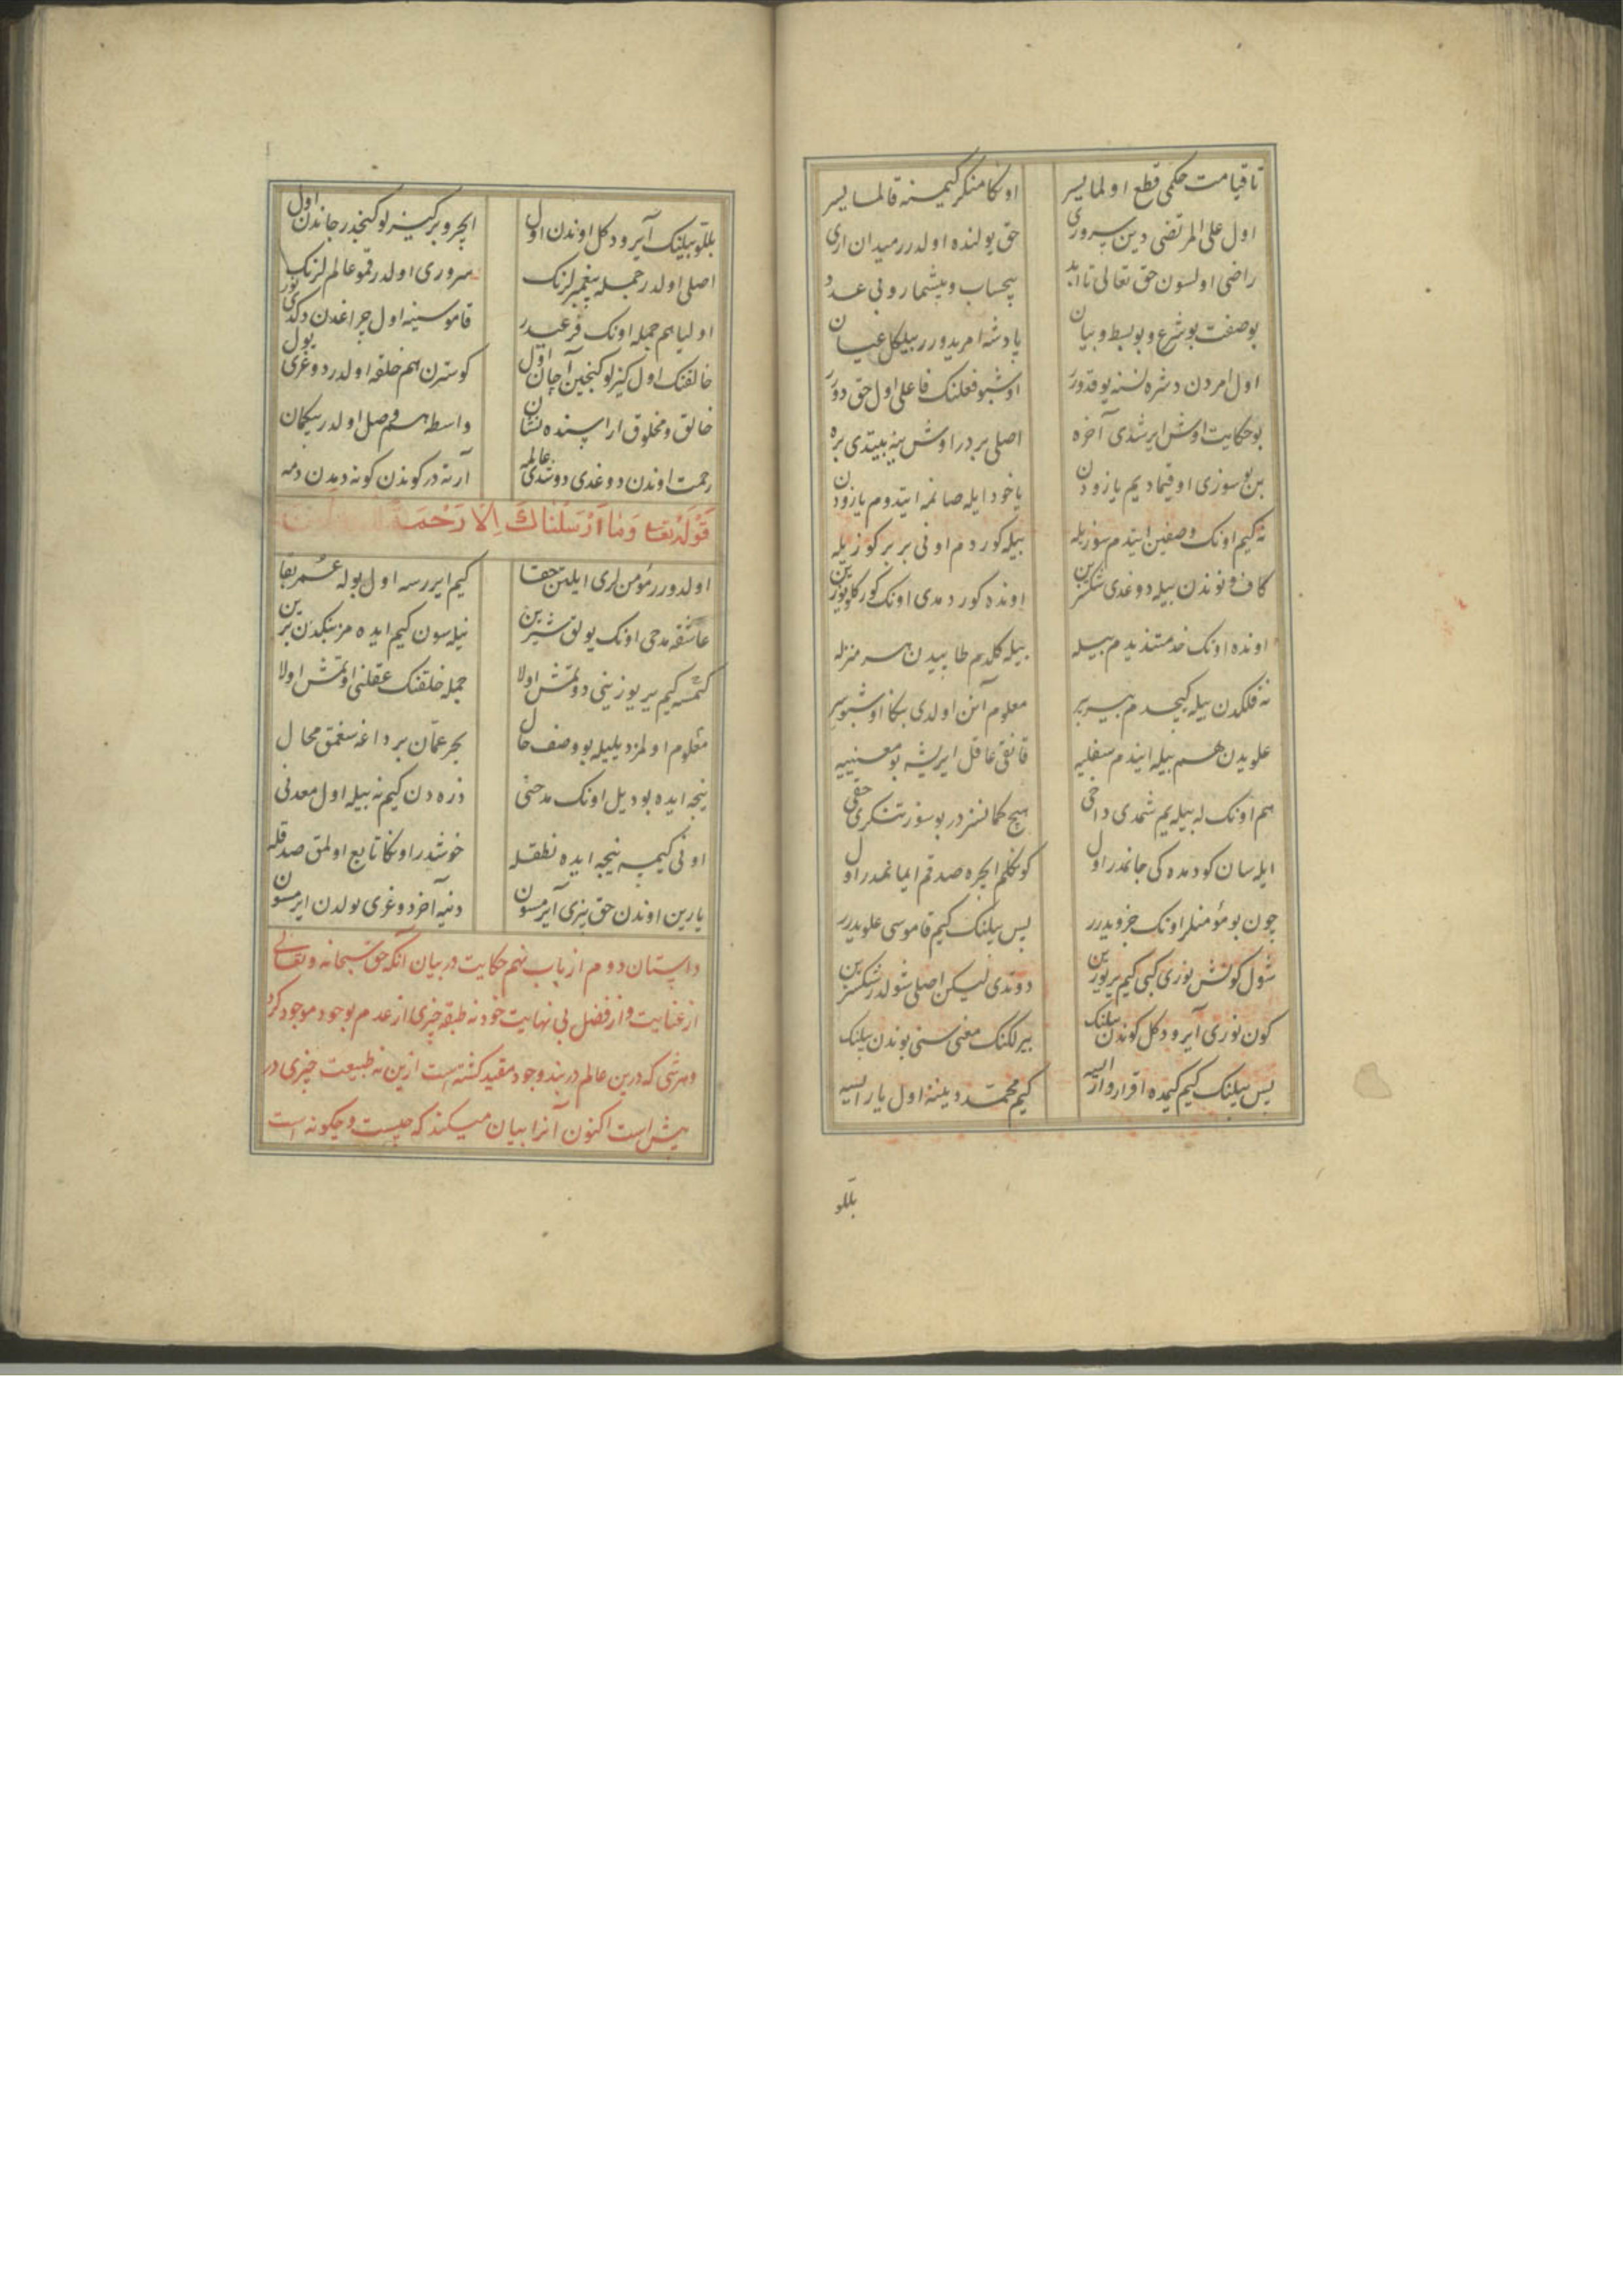 تا قیامت حکمی قطع اولمایسر اوکا منکر کیمسنه قالمایسر
اول علی المرتضی دین سروری حق یولنده اولدر میدان اری
راضی اولسون حق تعالی تا ابد بیحساب و بیشمار و بی عدد
بو صفت بو شرع و بو بسط و بیان پادشه امریدورر بیلکل عیان
اول امردن دشره نسنه یوقدورر اوشبو فعلنک فاعلی اول حق دورر
بو حکایت اوش ایرشدی آخره اصلی بردر اوش ینه بیتدی بره
بن بو سوزی اوقیمادیم یازودن یا خود ایله صانمه ایتدوم یازودن
نه کیم اونک وصفین ایتدم سوزیله بیله کوردم اونی بر بر کوزیله
کاف و نوندن بیله دوغدی شکسزین اونده کوردمدی اونک کورکلو یوزین
اونده اونک خدمتندیدم بیله بیله کلدیم طاپیدن هر منزله
نه فلکدن بیله کیجدم بیر بیر معلوم آنن اولدی بکا اوشبو سر
علویدن هم بیله ایندم سفلیه قانقی عاقل ایریشه بو معنییه
هم اونک له بیله یم شمدی داخی هیچ کمانسزدر بو سوز تنکری حقی
ایله سان کودمده کی جانمدر اول کوکلم ایچره صدقم ایمانمدر اول
چون بو مؤمنلر اونک جزویدرر پس بیلنک کیم قاموسی علویدرر
شول کونش نوری کبی کیم یر یوزین دوتدی لیکن اصلی شولدر شکسزین
کون نوری آیرو دکل کوندن بیلنک بیرلکنک معنی سنی بوندن بیلنک
پس بیلنک کیم کیمده اقرار وار ایسه کیم محمد دینینه اول یار ایسه
بللو
بللو بیلینک آیرو دکل اوندن اول ایچرو بر کیزلو کنجدر جاندن اول
اصلی اولدر جمله پیغمبرلرنک سروری اولدر قمو عالملرنک
اولیا هم جمله اونک فرعیدر قاموسینه اول چراغدن دکدی نور
خالقنک اول کیزلو کنجین آچان اول کوسترن هم خلقه اولدر دوغری یول
خالق و مخلوق اراسنده نشان واسطه هم وصل اولدر بیکمان
رحمت اوندن دوغدی دوتدی عالمه آرته در کوندن کونه دمدن دمه
قوله تعا وما ارسلناك الا رحمة
اولدورر مؤمن لری ایلتن حقا کیم ایررسه اول بوله عمر بقا
عاشقه مدحی اونک یولق شیرین نیلسون کیم ایده مز بیکدن برین
کمسه کیم یر یوزینی دوتمش اولا جمله خلقنک عقلنی اوتمش اولا
معلوم اولمز دیلیله بو وصف حال بحر عمان بر داغه سغمق محال
نیجه ایده بو دیل اونک مدحنی ذره دن کیم نه بیله اول معدنی
اونی کیمسه نیجه ایده نطقله خوشدر اوکا تابع اولمق صدقله
یارین اوندن حق بیزی آیرمسون دنیه آخر دوغری یولدن ایرمسون
داستان دوم از باب نهم حکایت در بیان آنکه حق سبحانه و تعالی
از عنایت و از فضل بی نهایت خود نه طبقه چیزی از عدم بوجود موجود کرد
و هر شی که درین عالم در بند وجود مقید کشته است ازین نه طبیعت چیزی در
بیش است اکنون آنرا بیان میکند که چیست و چکونه است